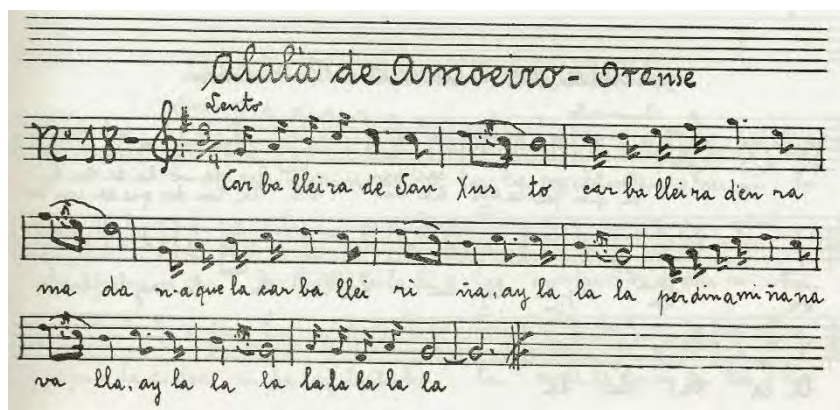 Alalà de Amoeiro - Orense
Lento
Nº 18 -
Car ba lleira de San Xus to car ba lleira den ra
ma da n-aque la car ba llei ri ña, ay la la la perdinamiñana
va lla, ay la la la la la la la la